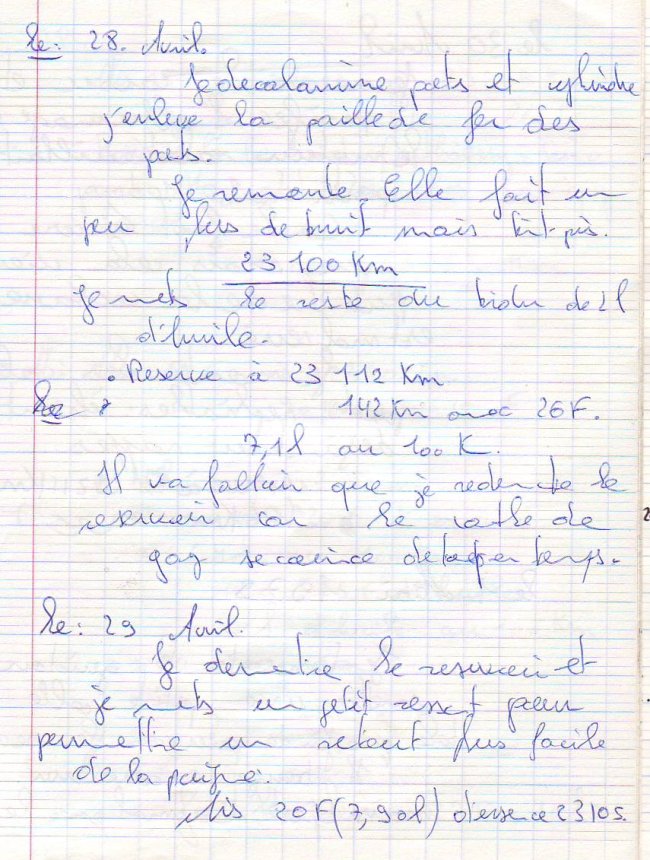 Le: 28. Avril.
Je decalamine pots et cylindre
j'enleve la paille de fer des
pots.
Je remonte. Elle fait un
peu plus de bruit mais tant-pis.
23 100 Km
Je mets le reste du bidon de 2l
d'huile.
. Reserve à 23 112 Km
Le : 142 Km avec 26 F.
7,1 l au 100 K.
Il va falloir que je redemonte le
reservoir car le cable de
gaz se coince de temps en temps.
Le: 29 Avril.
Je demonte le reservoir et
je mets un petit ressort pour
permettre un retour plus facile
de la poignée.
Mis 20F (7,90l) d'essence 23105.